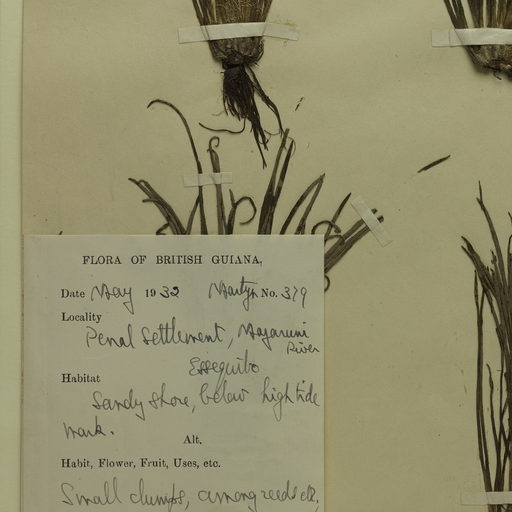 FLORA OF BRITISH GUIANA.
Date May 1932 Martyn No. 379
Locality
Penal Settlement, Mazaruni
River
Essequibo
Habitat
Sandy shore, below high tide
mark.
Alt.
Habit, Flower, Fruit, Uses, etc.
Small clumps, among reeds etc,